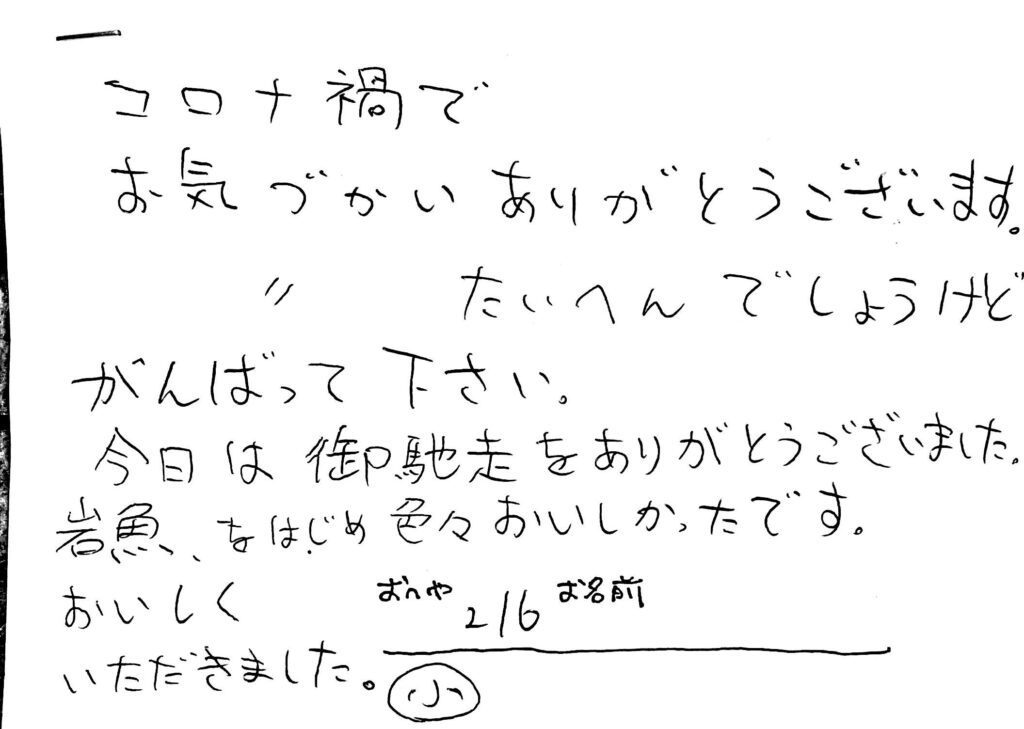 コロナ禍で
お気づかいありがとうございます。
〃 たいへんでしょうけど
がんばって下さい。
今日は御馳走をありがとうございました。
岩魚、をはじめ色々おいしかったです。
おいしく
いただきました。
おへや 216 お名前
小